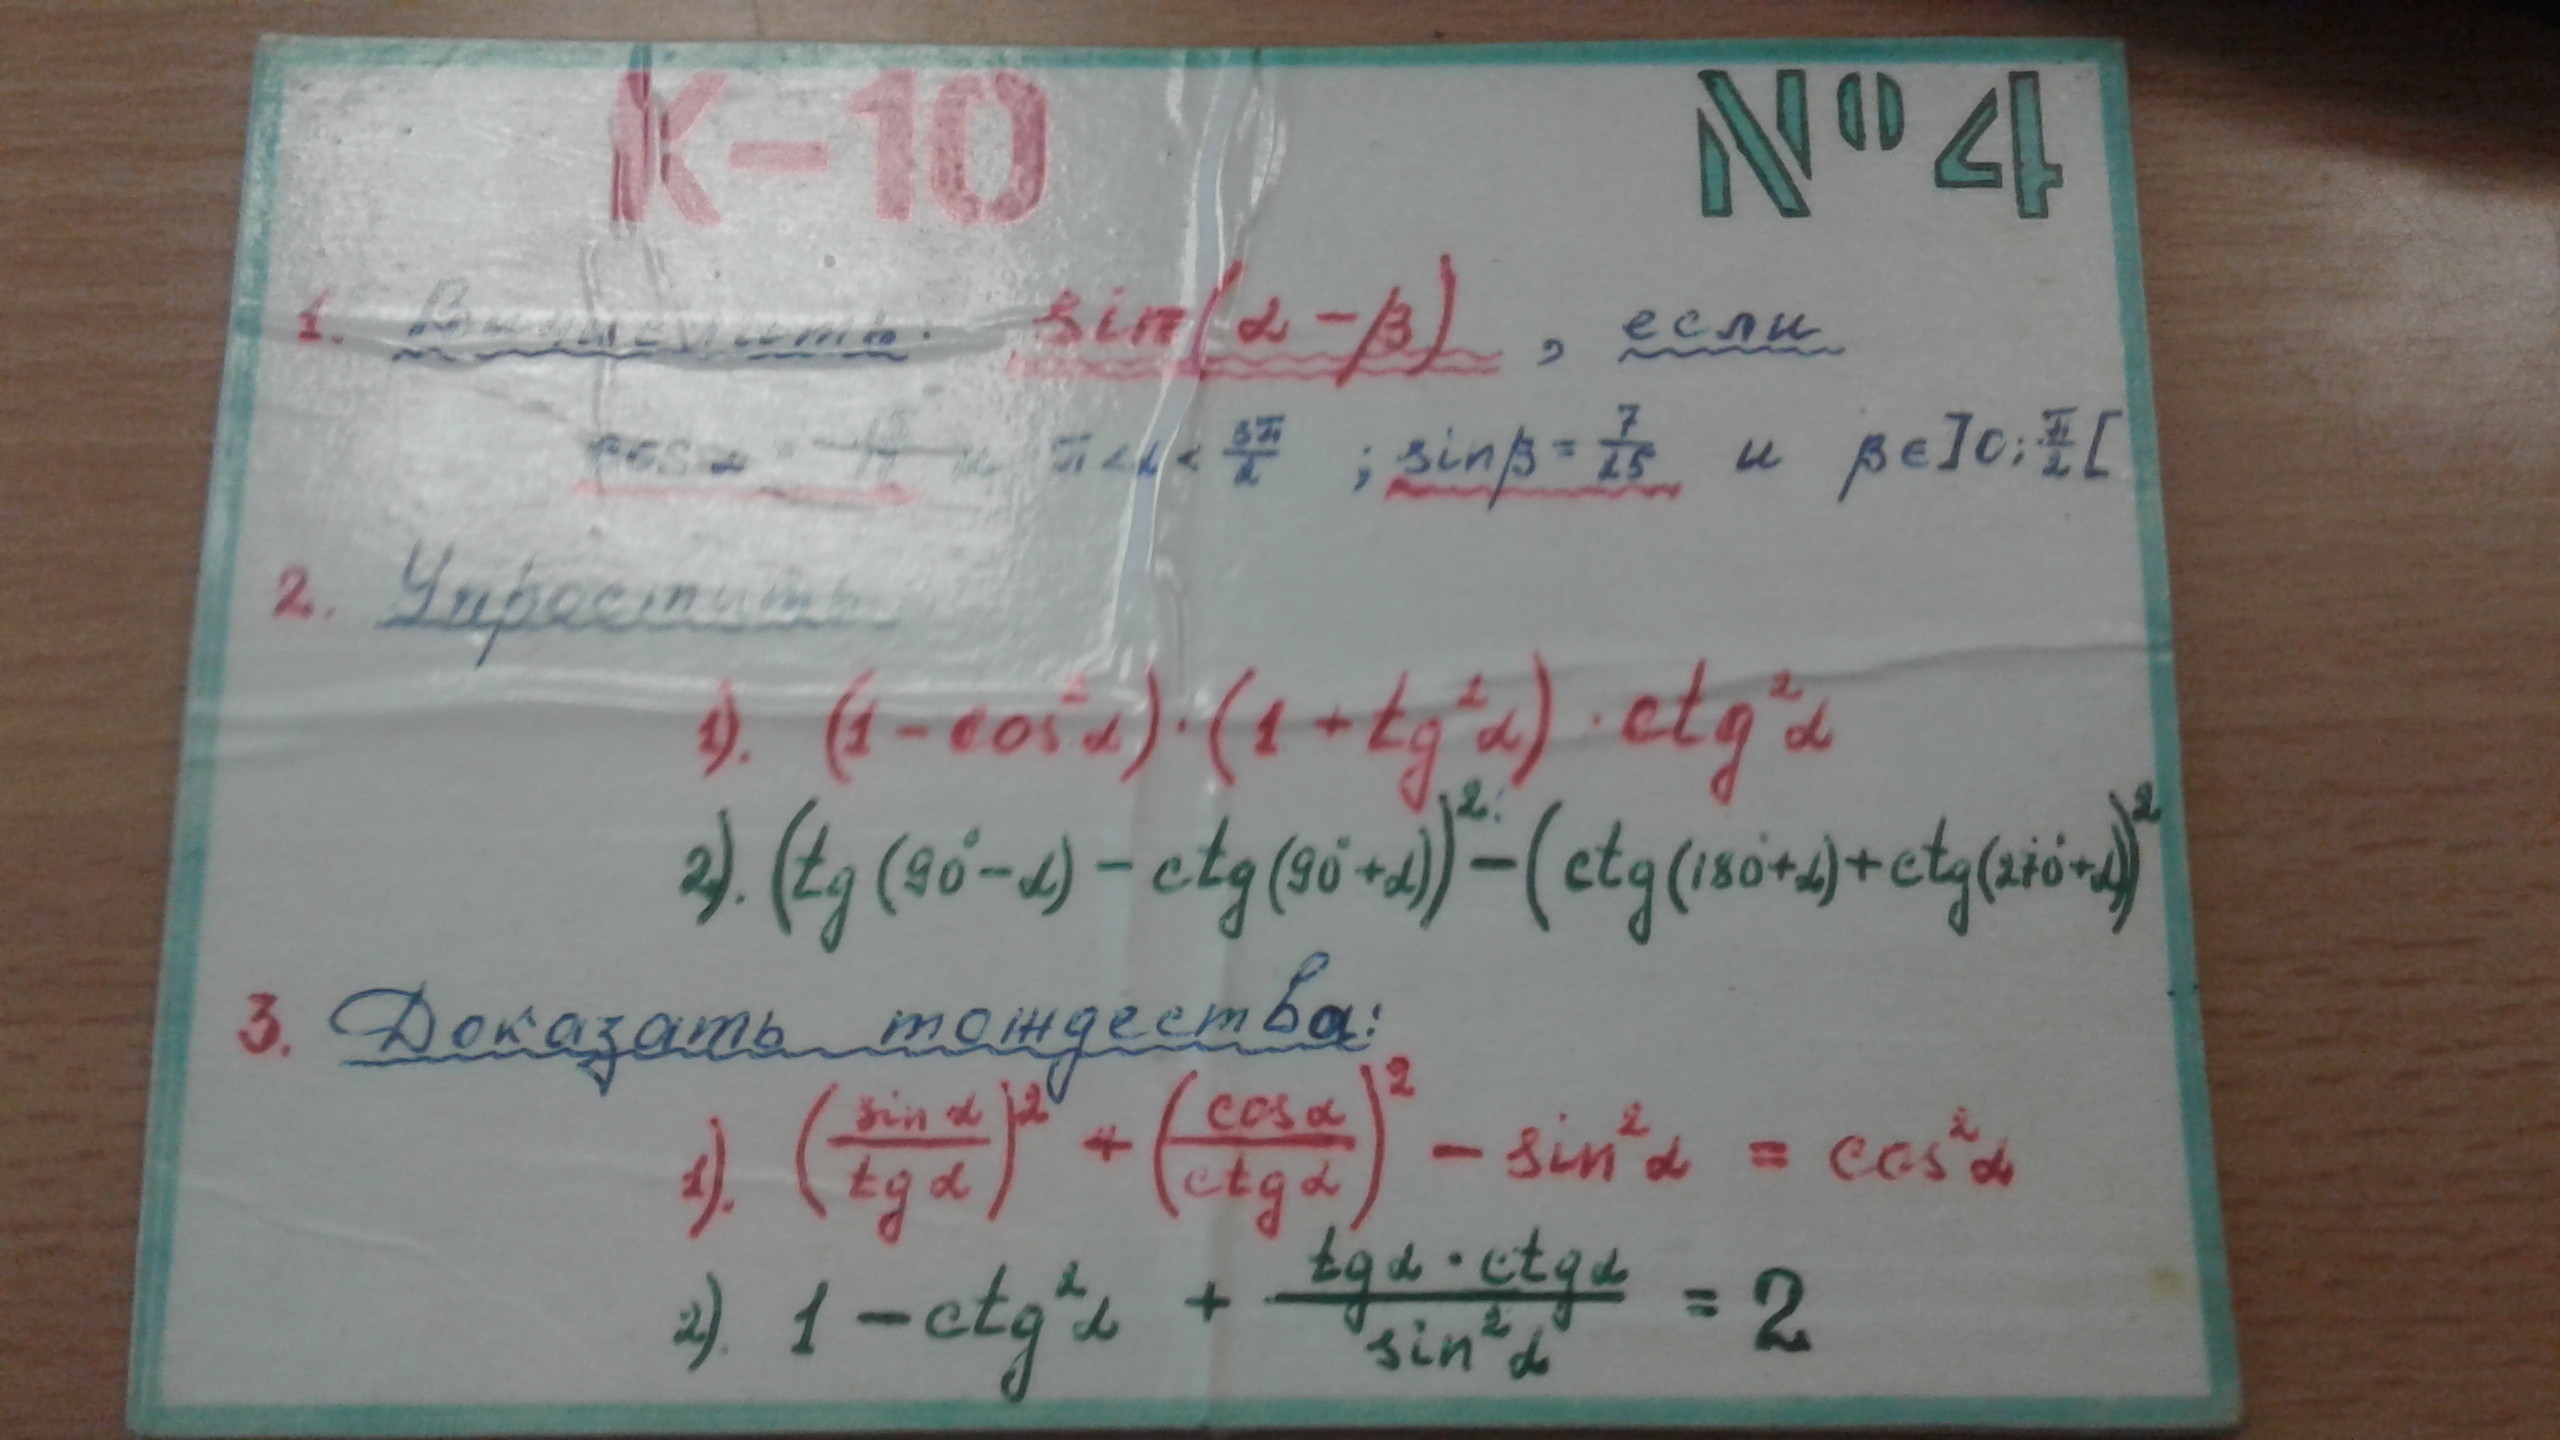 К-10 №4
1. Вычислить: sin(α-β), если
cos α = и π<α<3π/2 ; sinβ=7/25 и β∈]0;π/2[
2. Упростить
1). (1-cos²α)·(1+tg²α)·ctg²α
2). (tg(90°-α)-ctg(90°+α))²-(ctg(180°+α)+ctg(270°+α))²
3. Доказать тождества:
1). (sin α/tg α)²+(cos α/ctg α)²-sin²α = cos²α
2). 1-ctg²α + tgα·ctgα/sin²α = 2